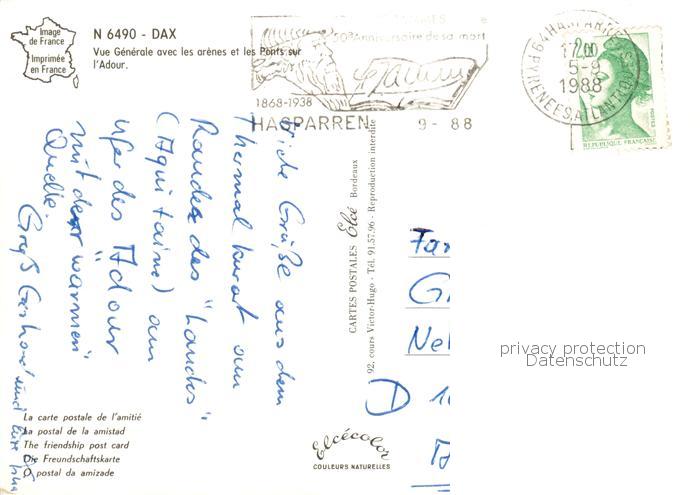 Image
de France
Imprimée
en France
N 6490 - DAX
Vue Générale avec les arènes et les Ponts sur
l'Adour.
50e Anniversaire de sa mort
1868-1938
HASPARREN
9 - 88
64 HASPARREN
17 00
5-9
1988
PYRENEES ATLANTIQUES
2,00
POSTES
REPUBLIQUE FRANÇAISE
Viele Grüße aus dem
Thermalkurort am
Rande des "Landes"
(Aquitaine) am
Ufer des Adour
mit der "warmen"
Quelle.
Gruß Gerhard und
CARTES POSTALES Elcé Bordeaux
92, cours Victor-Hugo - Tél. 91.57.96 - Reproduction interdite
Fa
G
Ne
D 1
privacy protection
Datenschutz
La carte postale de l'amitié
La postal de la amistad
The friendship post card
Die Freundschaftskarte
O postal da amizade
Elcécolor
COULEURS NATURELLES